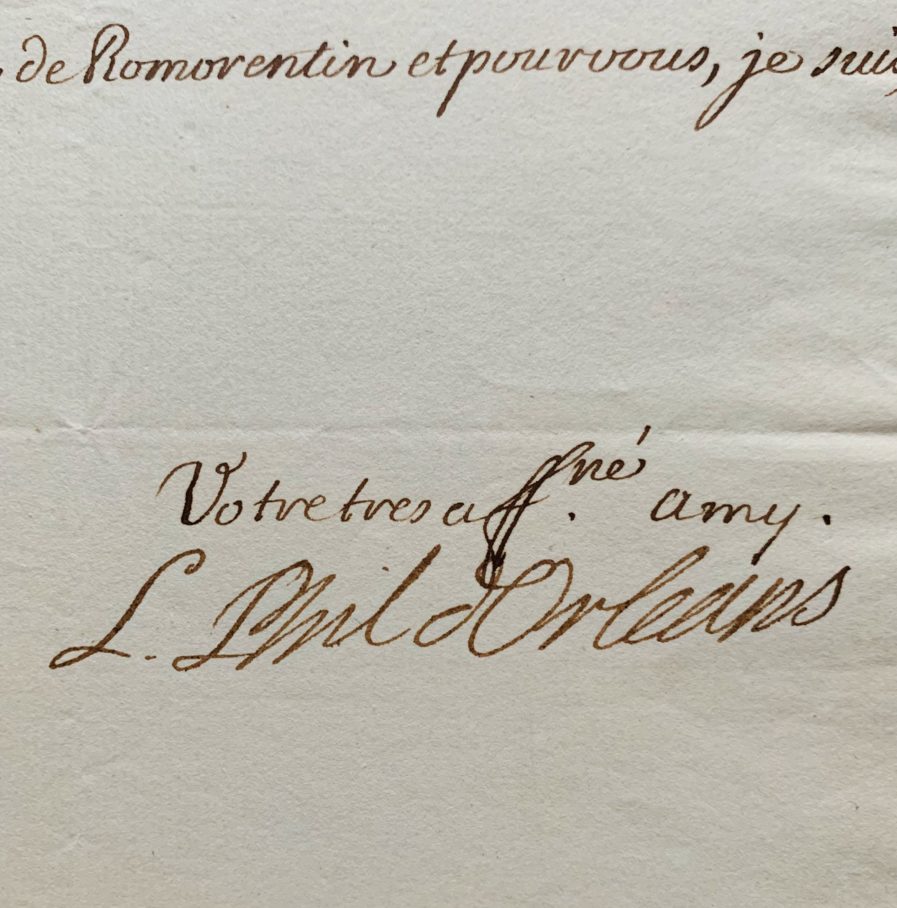 de Romorentin et pour vous, je suis,
Votre tres aff.né amy.
L. Phil d'Orleans